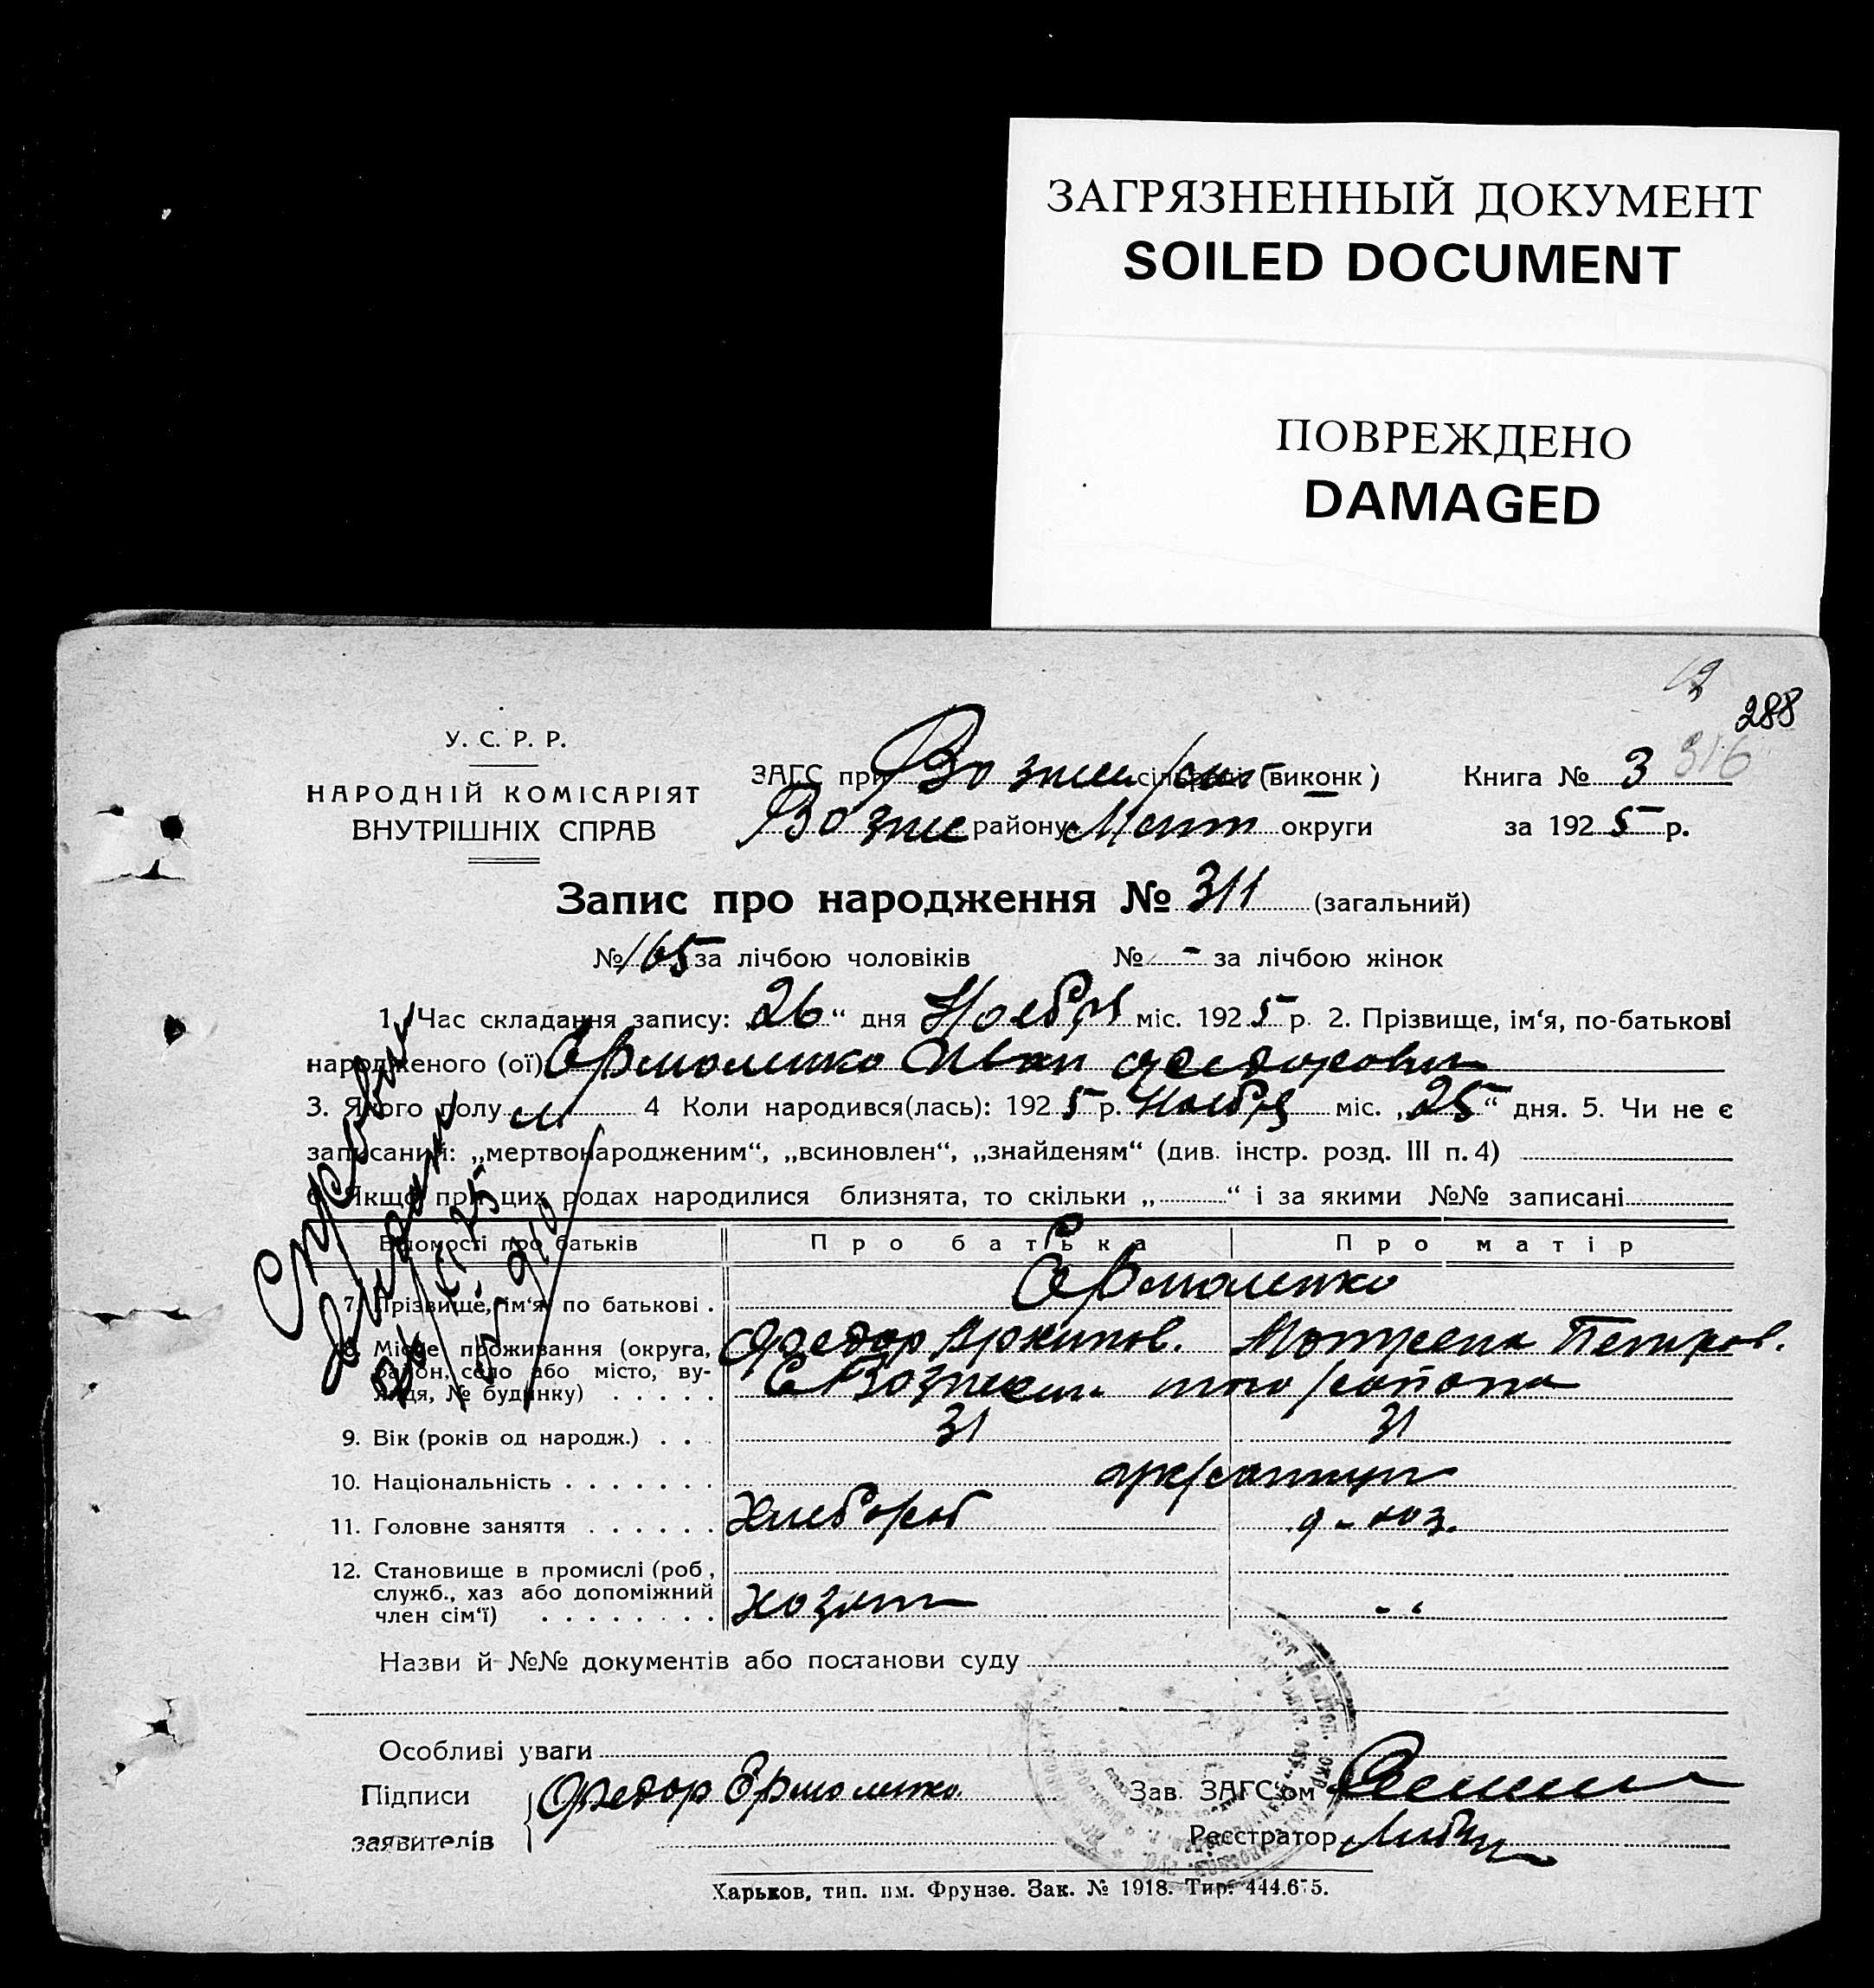 ЗАГРЯЗНЕННЫЙ ДОКУМЕНТ
SOILED DOCUMENT
ПОВРЕЖДЕНО
DAMAGED
288
316
У. С. Р. Р.
НАРОДНІЙ КОМІСАРІЯТ
ВНУТРІШНІХ СПРАВ
ЗАГС при (виконк)
Книга № 3
района Мелит округи
за 1925 р.
Запис про народження № 311 (загальний)
№ 165 за лічбою чоловіків № - за лічбою жінок
1. Час складання запису: „26“ дня Ноября міс. 1925 р. 2. Прізвище, ім‘я, по-батькові
народженого (ої) Ермоленко Иван Федорович
3. Якого полу м 4 Коли народився(лась): 1925 р. Ноября міс. „25“ дня. 5. Чи не є
записаний: „мертвонародженим“, „всиновлен“, „знайденям“ (див. інстр. розд. III п. 4)
6. Якщо при цих родах народилися близнята, то скільки „ “ і за якими №№ записані
Відомості про батьків Про батька Про матір
Ермоленко
7. Прізвище, ім‘я по батькові . Федор Архипов. Мотрена Петров.
8. Місце проживання (округа,
район, село або місто, ву-
лиця, № будинку) . . . . .
9. Вік (років од народж.) . . . 31 31
10. Національність . . . . . . .
11. Головне заняття . . . . . . Хлебороб д-хоз.
12. Становище в промислі (роб,
служб., хаз або допоміжний
член сім‘ї) . . . . . . . . хозяин
Назви й №№ документів або постанови суду
Особливі уваги
Підписи
заявителів
Федор Ермоленко.
Зав. ЗАГС‘ом
Реєстратор
Харьков, тип. им. Фрунзе. Зак. № 1918. Тир. 444.675.